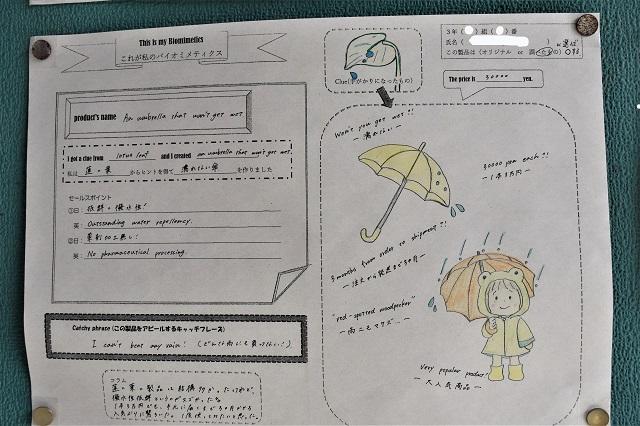 This is my Biomimetics
これが私のバイオミメティクス
product's name An umbrella that won't get wet
I got a clue from lotus leaf and I created an umbrella that won't get wet.
私は 蓮の葉 からヒントを得て 濡れない傘 を作りました
セールスポイント
①日： 抜群の撥水性！
英： Outstanding water repellency.
②日： 薬剤加工無し！
英： No pharmaceutical processing.
Catchy phrase (この製品をアピールするキャッチフレーズ)
I can't beat any rain! (どんな雨にも負ってない！)
コラム
蓮の葉の製品は結構
Clue(手がかりになったもの)
3年( )組( )番
氏名( )
この製品は (オリジナル or 調べたもの)
The price is 30000 yen.
Won't you get wet?!
ー濡れないー
30000 yen each?!
ー1本3万円ー
3 months from order to shipment?!
ー注文から発送まで3ヶ月ー
"red-spotted woodpecker"
ー雨ニモマケズ…ー
Very popular product!
ー大人気商品ー